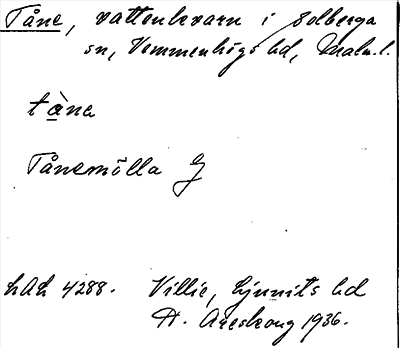 Tåne, vattenkvarn i Solberga
sn, Vemmenhögs hd, Malm. l.
tåna
Tånemölla G
LAL 4288. Villie, Ljunits hd
A. Areskoug 1936.